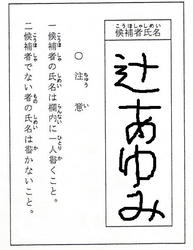 候補者氏名
こうほしゃしめい
辻あゆみ
○注意
ちゅうい
一候補者の氏名は欄内に一人書くこと。
こうほしゃ しめい らんない ひとり か
二候補者でない者の氏名は書かないこと。
こうほしゃ もの しめい か